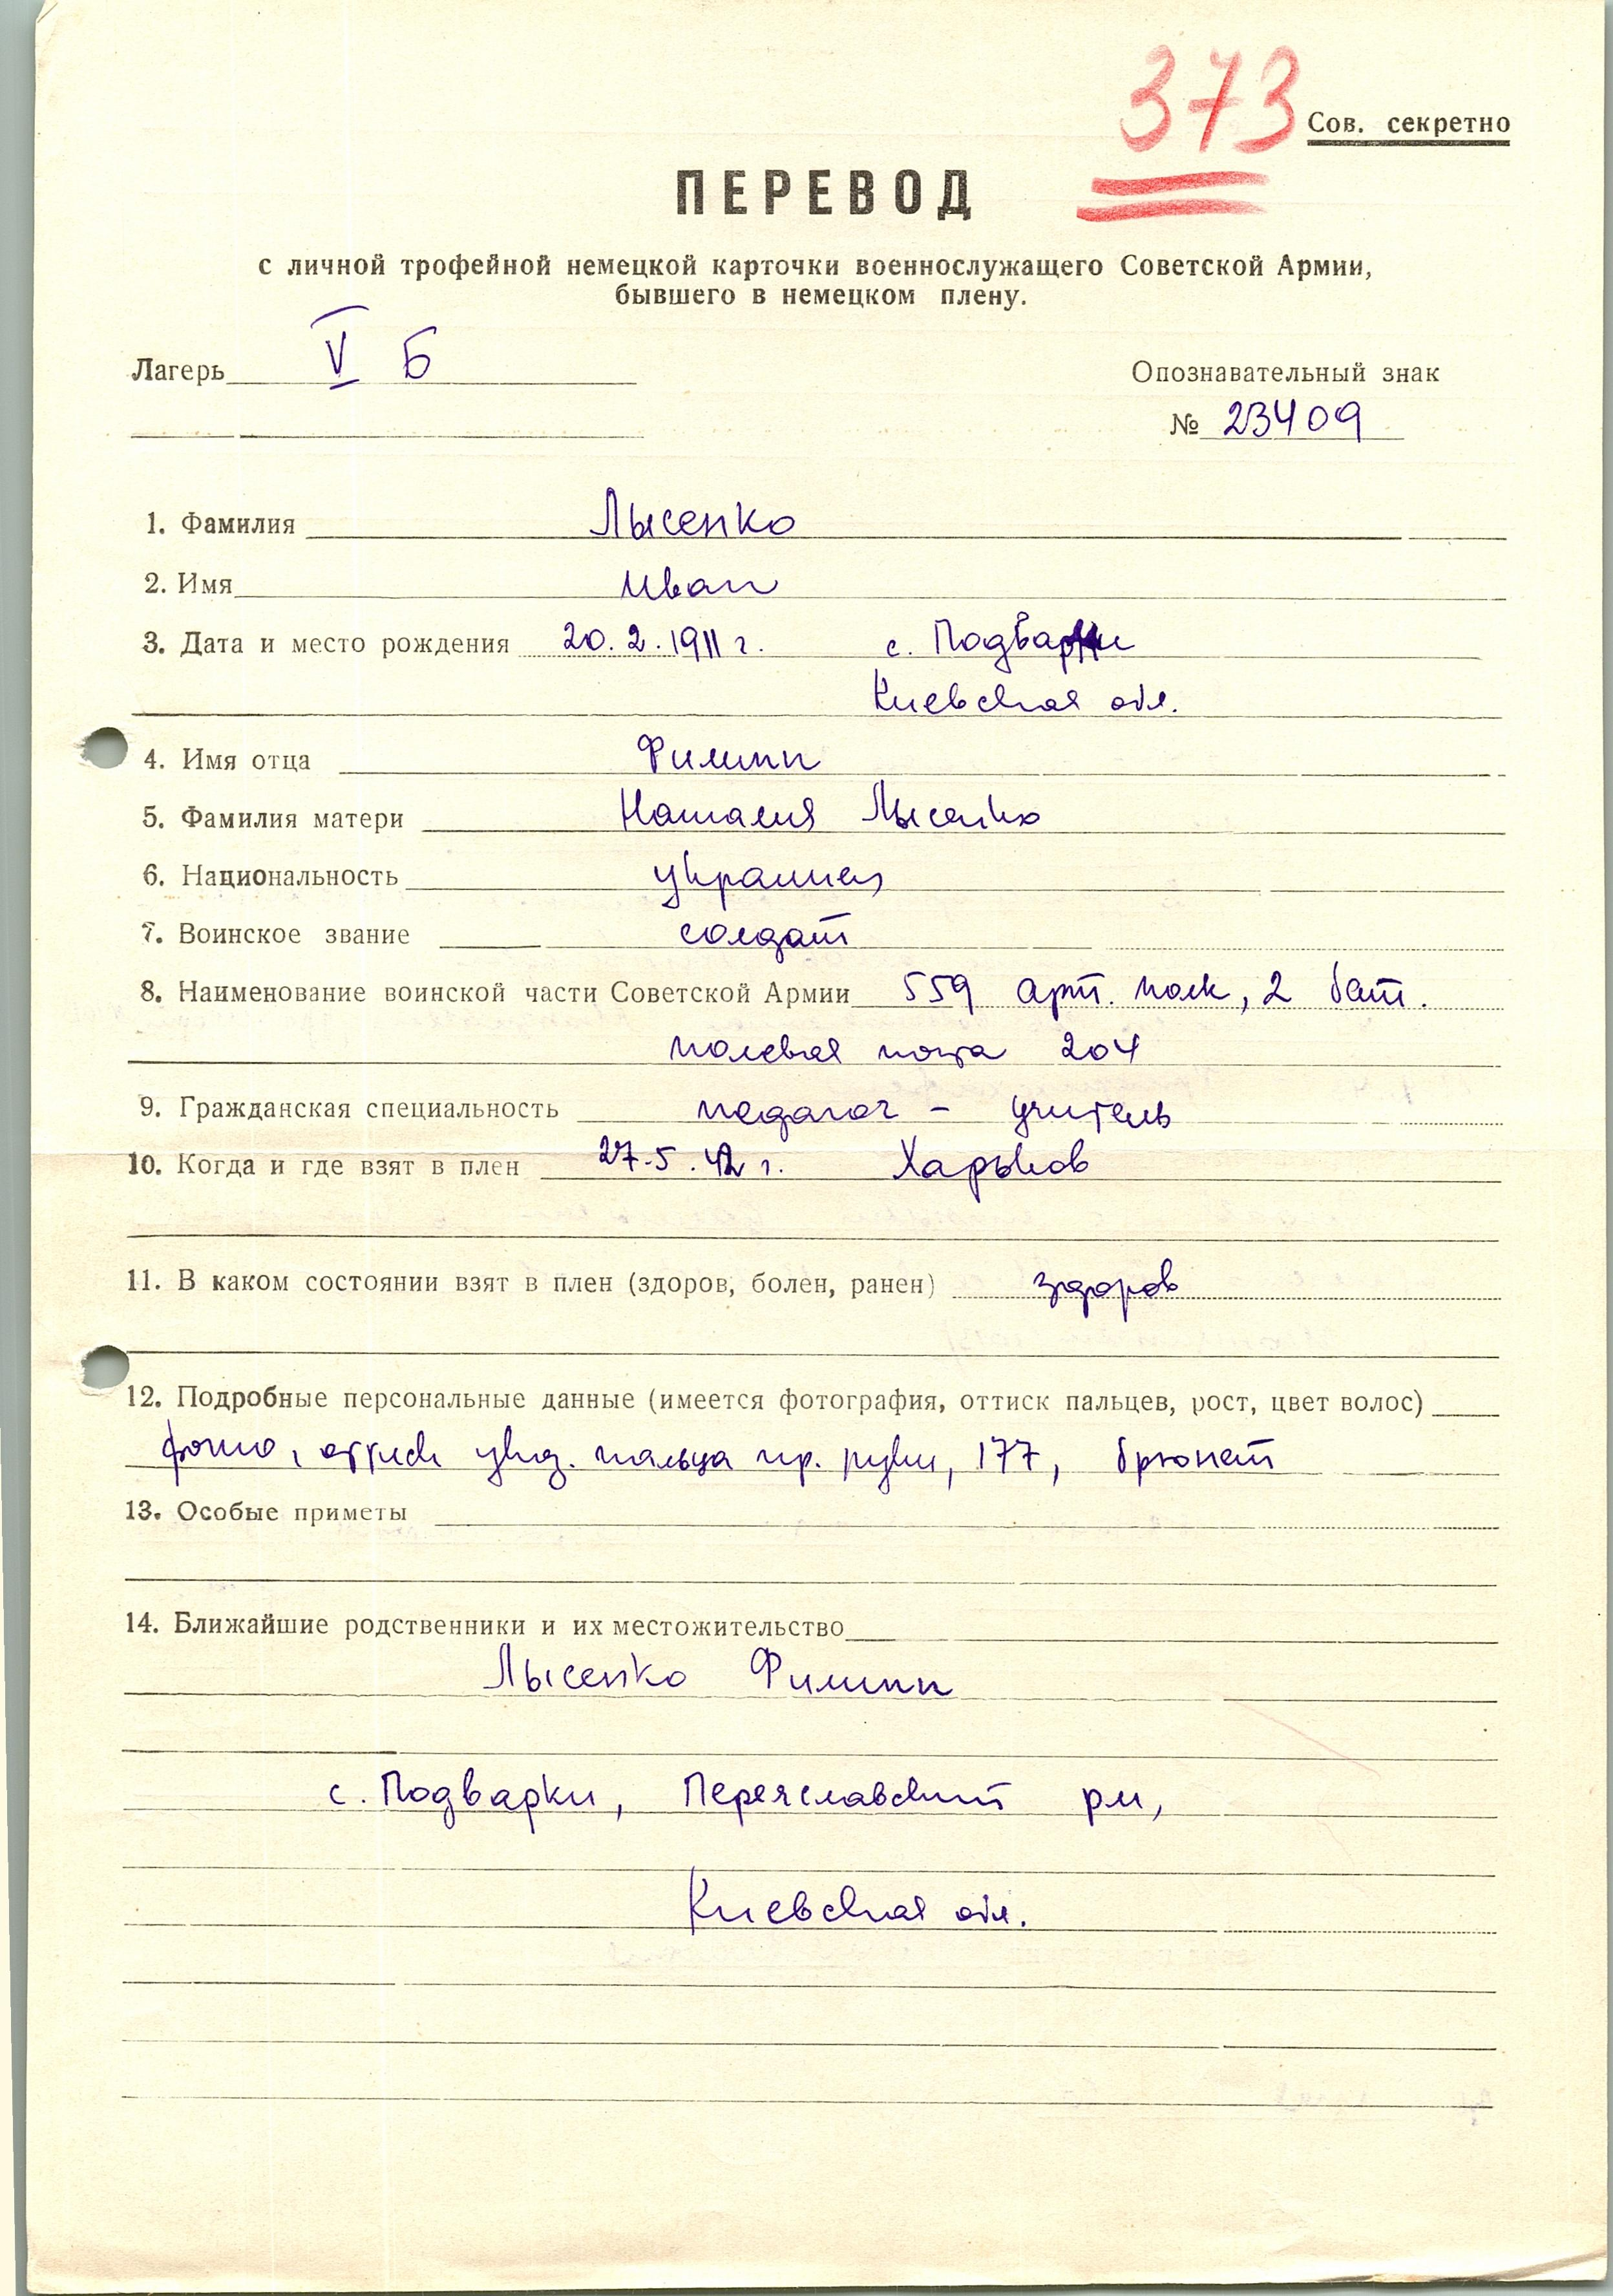 373
Сов. секретно
ПЕРЕВОД
с личной трофейной немецкой карточки военнослужащего Советской Армии,
бывшего в немецком плену.
Лагерь V Б
Опознавательный знак
№ 23409
1. Фамилия Лысенко
2. Имя Иван
3. Дата и место рождения 20.2.1911 г. с. Подварки
Киевская обл.
4. Имя отца Филипп
5. Фамилия матери Наталия Лысенко
6. Национальность украинец
7. Воинское звание солдат
8. Наименование воинской части Советской Армии 559 арт. полк, 2 бат.
полевая почта 204
9. Гражданская специальность педагог - учитель
10. Когда и где взят в плен 27.5.42 г. Харьков
11. В каком состоянии взят в плен (здоров, болен, ранен) здоров
12. Подробные персональные данные (имеется фотография, оттиск пальцев, рост, цвет волос)
фото, оттиск указ. пальца пр. руки, 177, брюнет
13. Особые приметы
14. Ближайшие родственники и их местожительство
Лысенко Филипп
с. Подварки, Переяславский р-н,
Киевская обл.